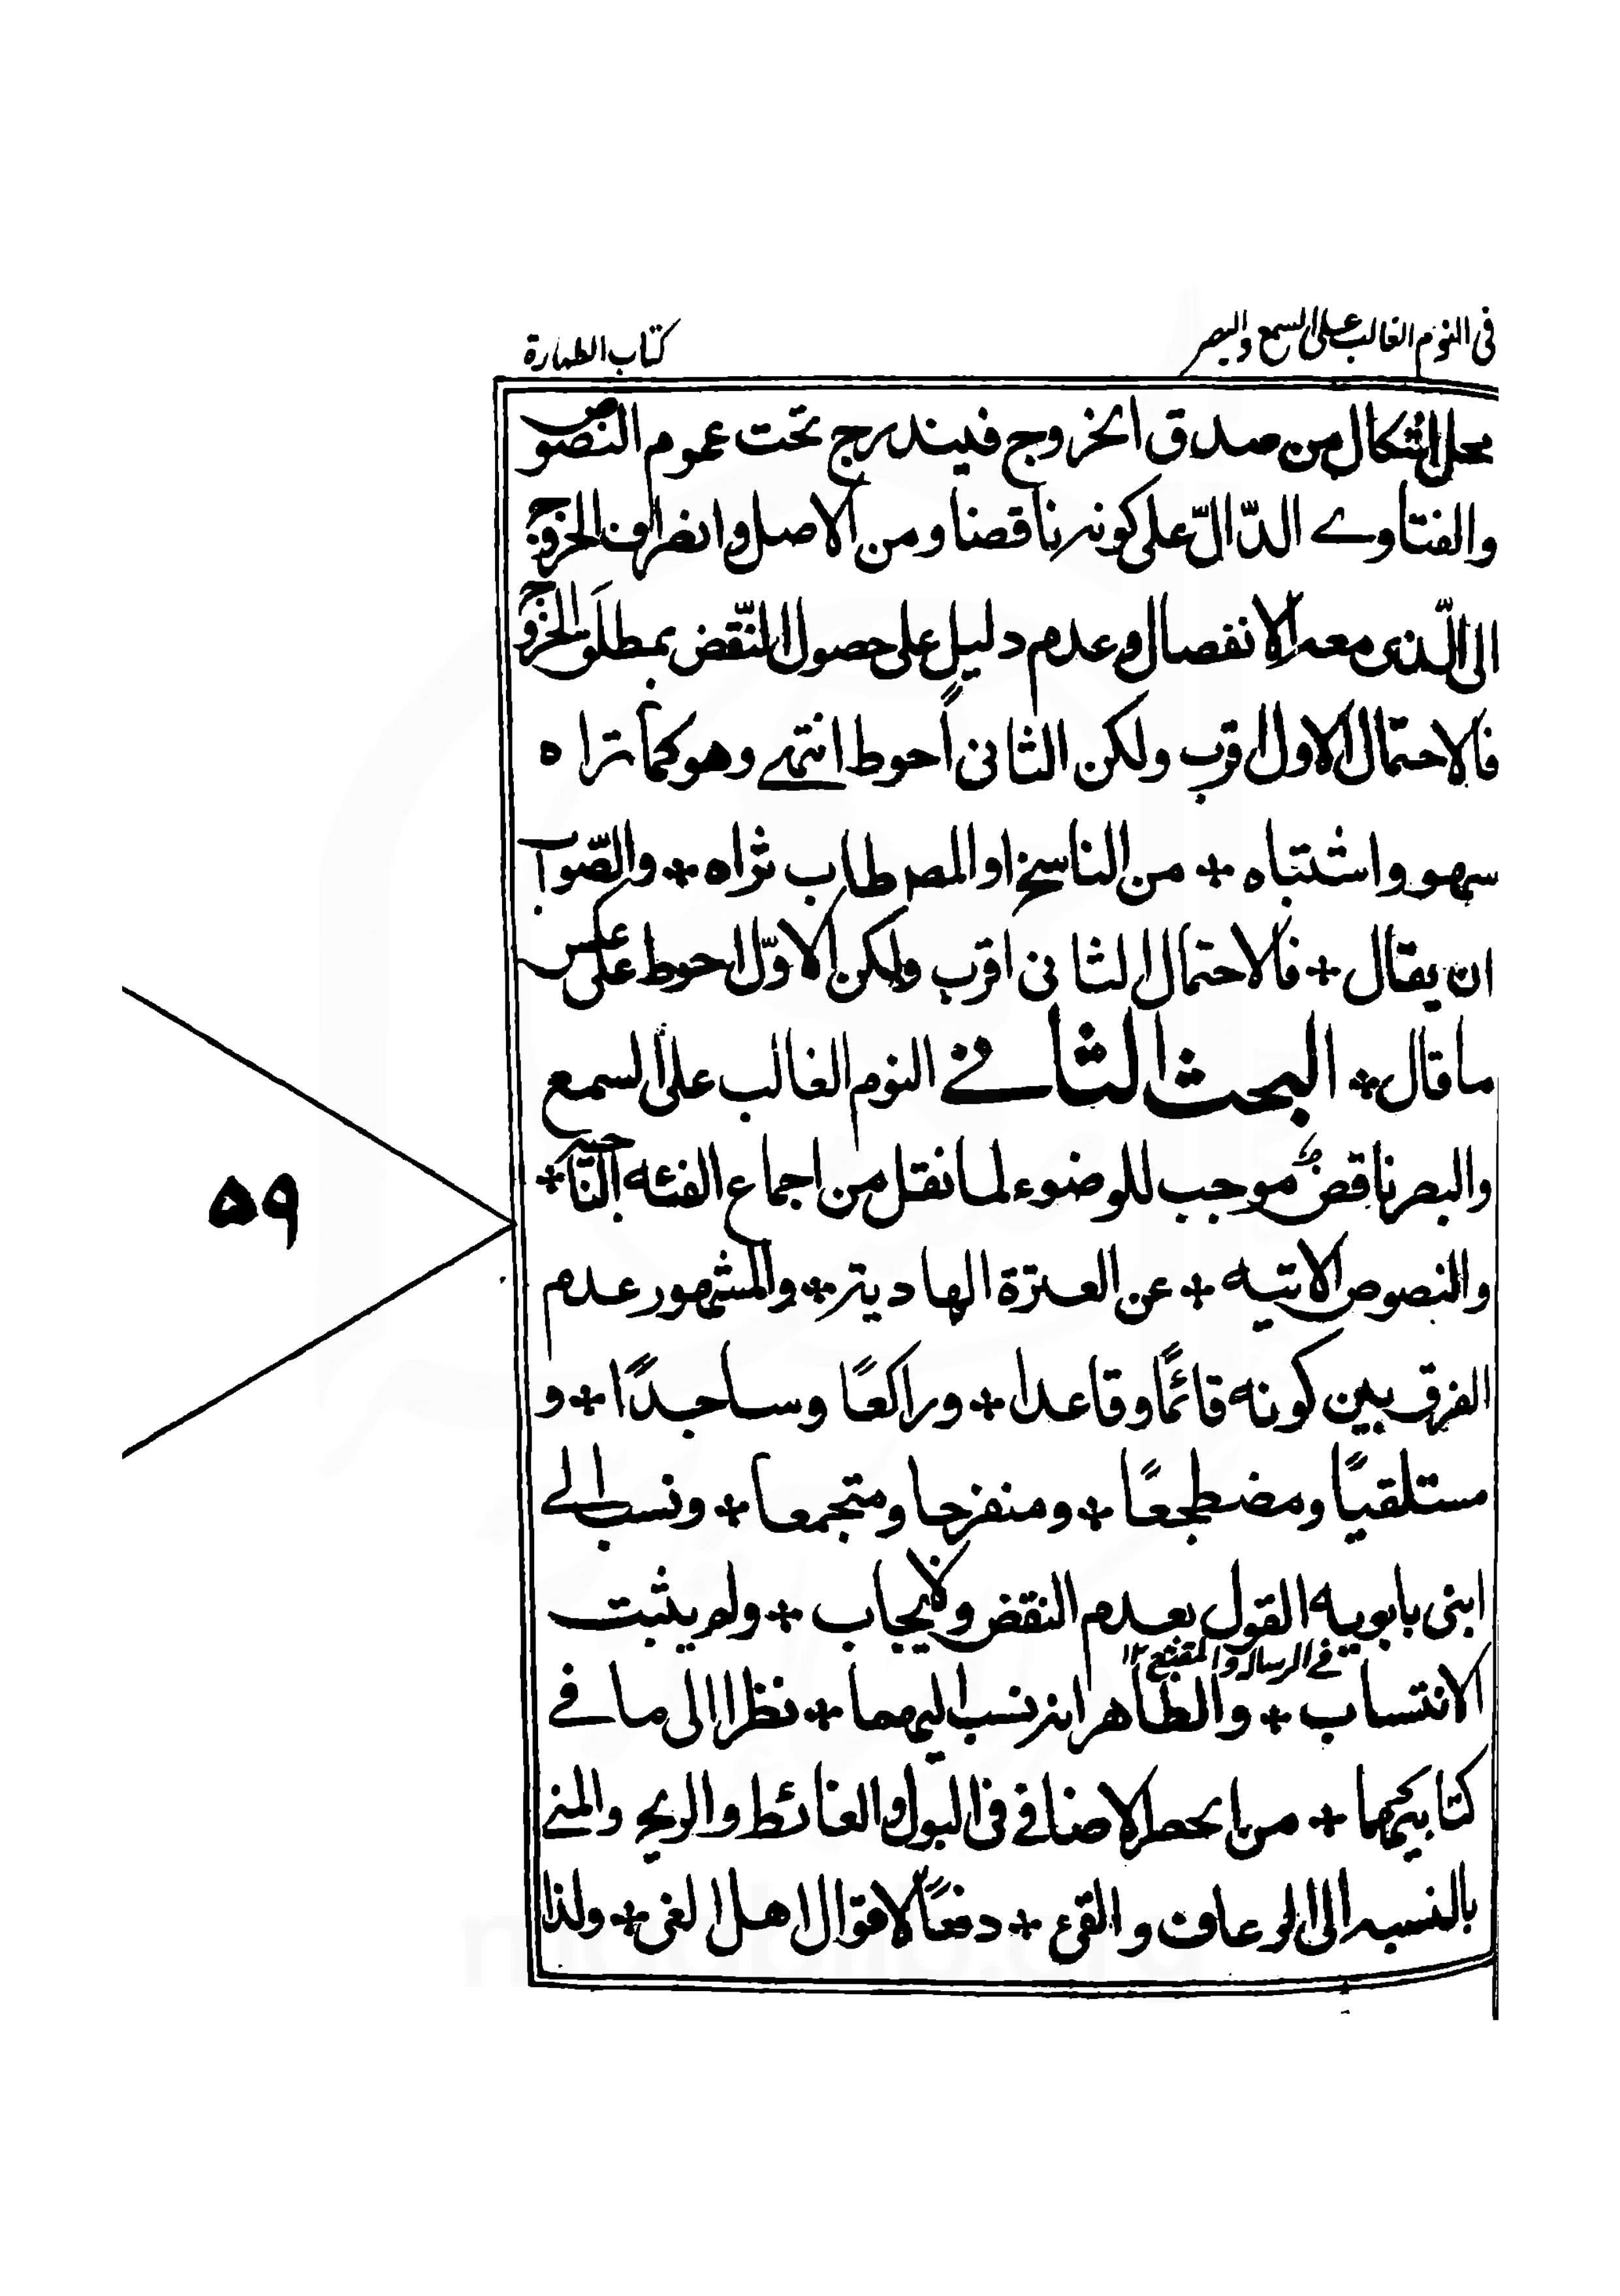 في النوم الغالب على السمع والبصر
كتاب الطهارة
محل اشكال من صدق الخروج فيندرج تحت عموم النصوص
والفتاوے الدّالّ على كونه ناقضا ومن الاصل وانصراف الخروج
الى الّذى معه الانفصال وعدم دليل على حصول النّقض بمطلق الخروج
فالاحتمال الاول اقرب ولكن الثانى احوط انتهے وهو كما تراه
سهو واشتباه + من الناسخ او المصـ طاب ثراه + والصّواب
ان يقال + فالاحتمال الثانى اقرب ولكن الاوّل احوط على عكس
ما قال + البحث الثانے في النوم الغالب على السمع
والبصر ناقض موجب للوضوء لما نقل من اجماع الفئه النّاجيه +
والنصوص الاتيه + عن العترة الهاديه + والمشهور عدم
الفرق بين كونه قائمًا وقاعدا + وراكعًا وساجدًا + و
مستلقيًا ومضطجعًا + ومنفرجا ومتجمعا + ونسب الے
ابنى بابويه القول بعدم النقض ولايجاب + ولم يثبت
في الرساله والمقنع ١٢
الانتساب + والظاهر انه نسب اليهما + نظرا الى ما في
كتابيهما + من الحصر الاضافي فى البول والغائط والريح والمنے
بالنسبه الى الرعاف والقئ + دفعًا لاقوال اهل الغى + ولذا
٥٩